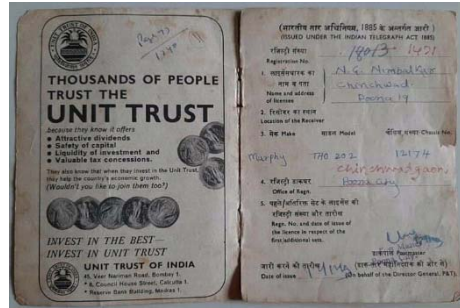 THOUSANDS OF PEOPLE
TRUST THE
UNIT TRUST
because they know it offers
• Attractive dividends
• Safety of capital
• Liquidity of investment and
• Valuable tax concessions.
They also know that when they invest in the Unit Trust,
they help the country's economic growth.
(Wouldn't you like to join them too?)
INVEST IN THE BEST—
INVEST IN UNIT TRUST
UNIT TRUST OF INDIA
45, Veer Nariman Road, Bombay 1.
* 8, Council House Street, Calcutta 1.
* Reserve Bank Building, Madras 1.
(भारतीय तार अधिनियम, 1885 के अन्तर्गत जारी)
(ISSUED UNDER THE INDIAN TELEGRAPH ACT 1885)
रजिस्ट्री संख्या
Registration No.
1. लाइसेंसधारक का
नाम व पता
Name and address
of licensee
N. G. Nimbalkar
Chinchwad
Poona 19
2. रिसीवर का स्थान
Location of the Receiver
3. मेक Make माडल Model चेसिस संख्या Chassis No.
Murphy 12174
4. रजिस्ट्री डाकघर
Office of Regn.
5. पहले/अतिरिक्त सेट के लाइसेंस की
रजिस्ट्री संख्या और तारीख
Reg. No. and date of issue of
the licence in respect of the
first/additional sets.
Postmaster
जारी करने की तारीख
Date of issue
(On behalf of the Director General, P&T).